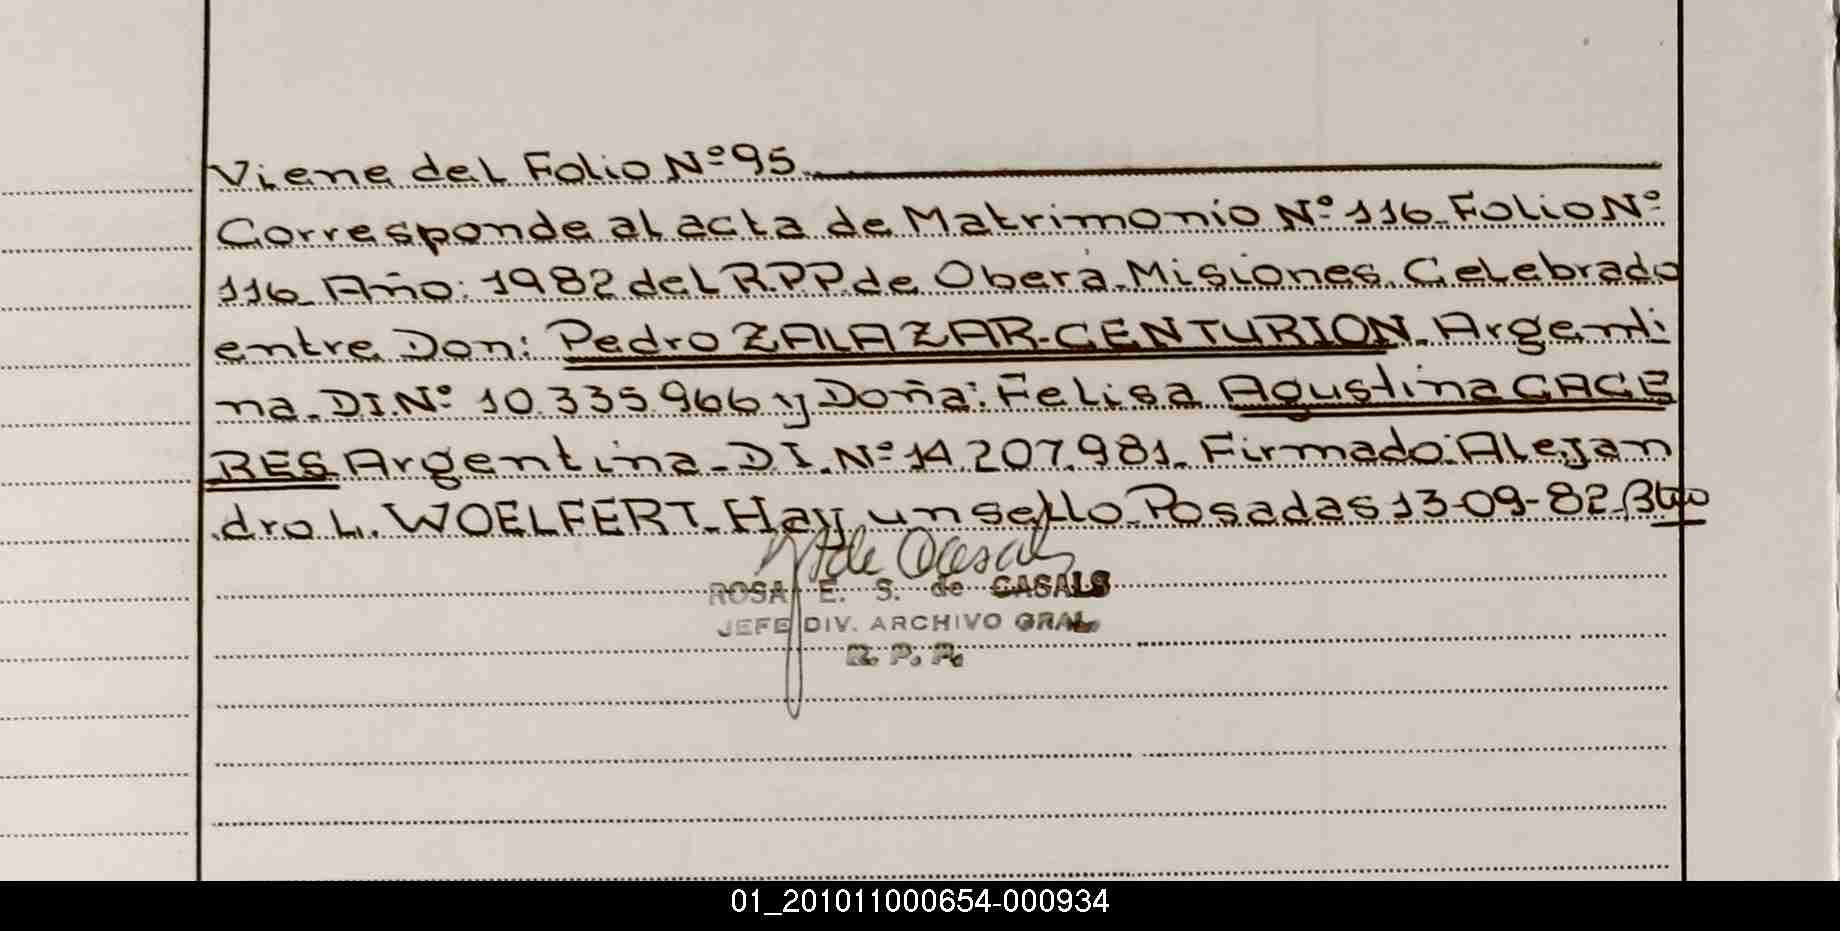 Viene del Folio Nº 95.
Corresponde al acta de Matrimonio Nº 116. Folio Nº
116. Año: 1982 del R.P.P. de Oberá. Misiones. Celebrado
entre Don: Pedro ZALAZAR-CENTURION. Argenti
na. D.I. Nº 10.335.966 y Doña: Felisa Agustina CACE
RES Argentina - D.I. Nº 14.207.981. Firmado: Alejan
dro L. WOELFERT. Hay un sello. Posadas 13-09-82.
ROSA E. S. de CASALS
JEFE DIV. ARCHIVO GRAL.
R. P. P.
01_201011000654-000934